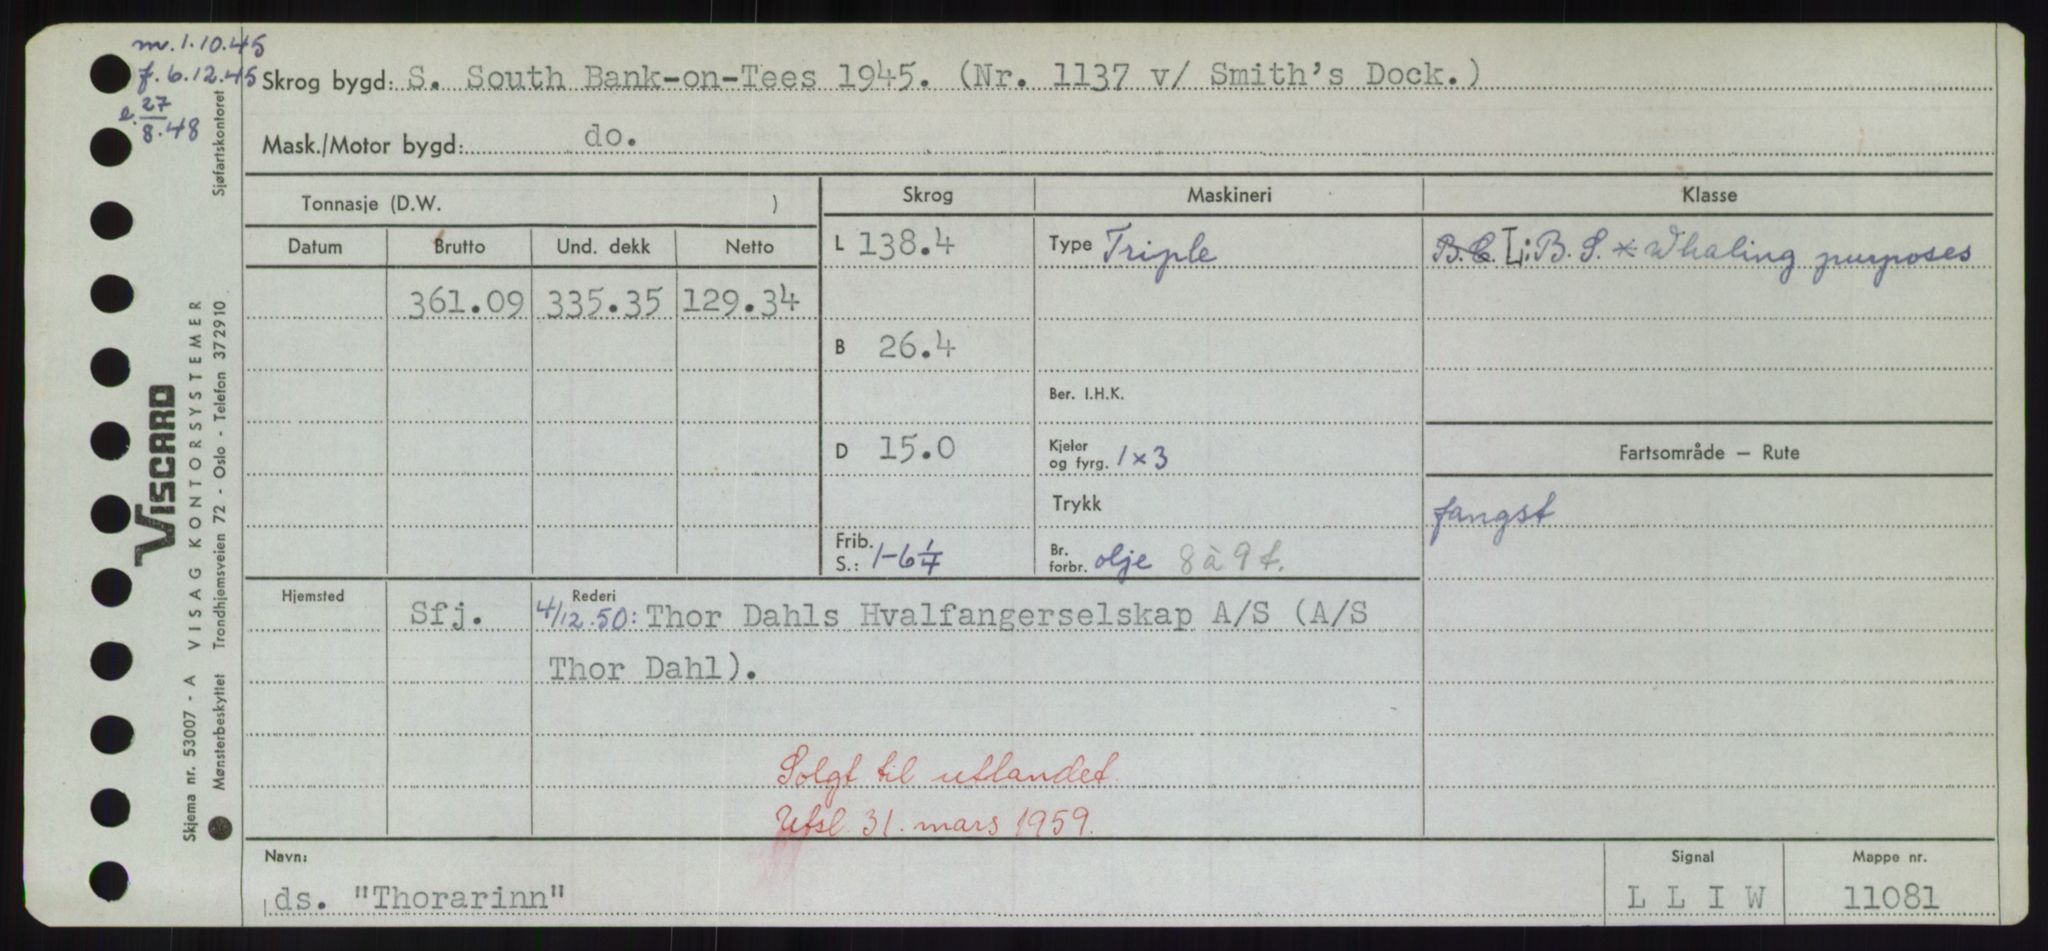 m. 1.10.45
f. 6.12.45
e. 27/8.48
Skrog bygd: S. South Bank-on-Tees 1945. (Nr. 1137 v/ Smith's Dock.)
Mask./Motor bygd: do.
Sjøfartskontoret
Tonnasje (D.W. )
Skrog Maskineri Klasse
Datum Brutto Und. dekk Netto
L 138.4 Type Triple B.C. L:B.S. * Whaling purposes
361.09 335.35 129.34
B 26.4
Ber. I.H.K.
D 15.0 Kjeler og fyrg. 1 x 3 Fartsområde — Rute
Trykk fangst
Frib. S.: 1-6 1/7 Br. forbr. olje 8 à 9 t.
Hjemsted Sfj. Rederi 4/12.50: Thor Dahls Hvalfangerselskap A/S (A/S
Thor Dahl).
Solgt til utlandet.
Utsl. 31. mars 1959.
Navn: Signal Mappe nr.
ds. "Thorarinn" L L I W 11081
VISCARD
Skjema nr. 53007 - A VISAG KONTORSYSTEMER
Mønsterbeskyttet Trondhjemsveien 72 - Oslo - Telefon 372910